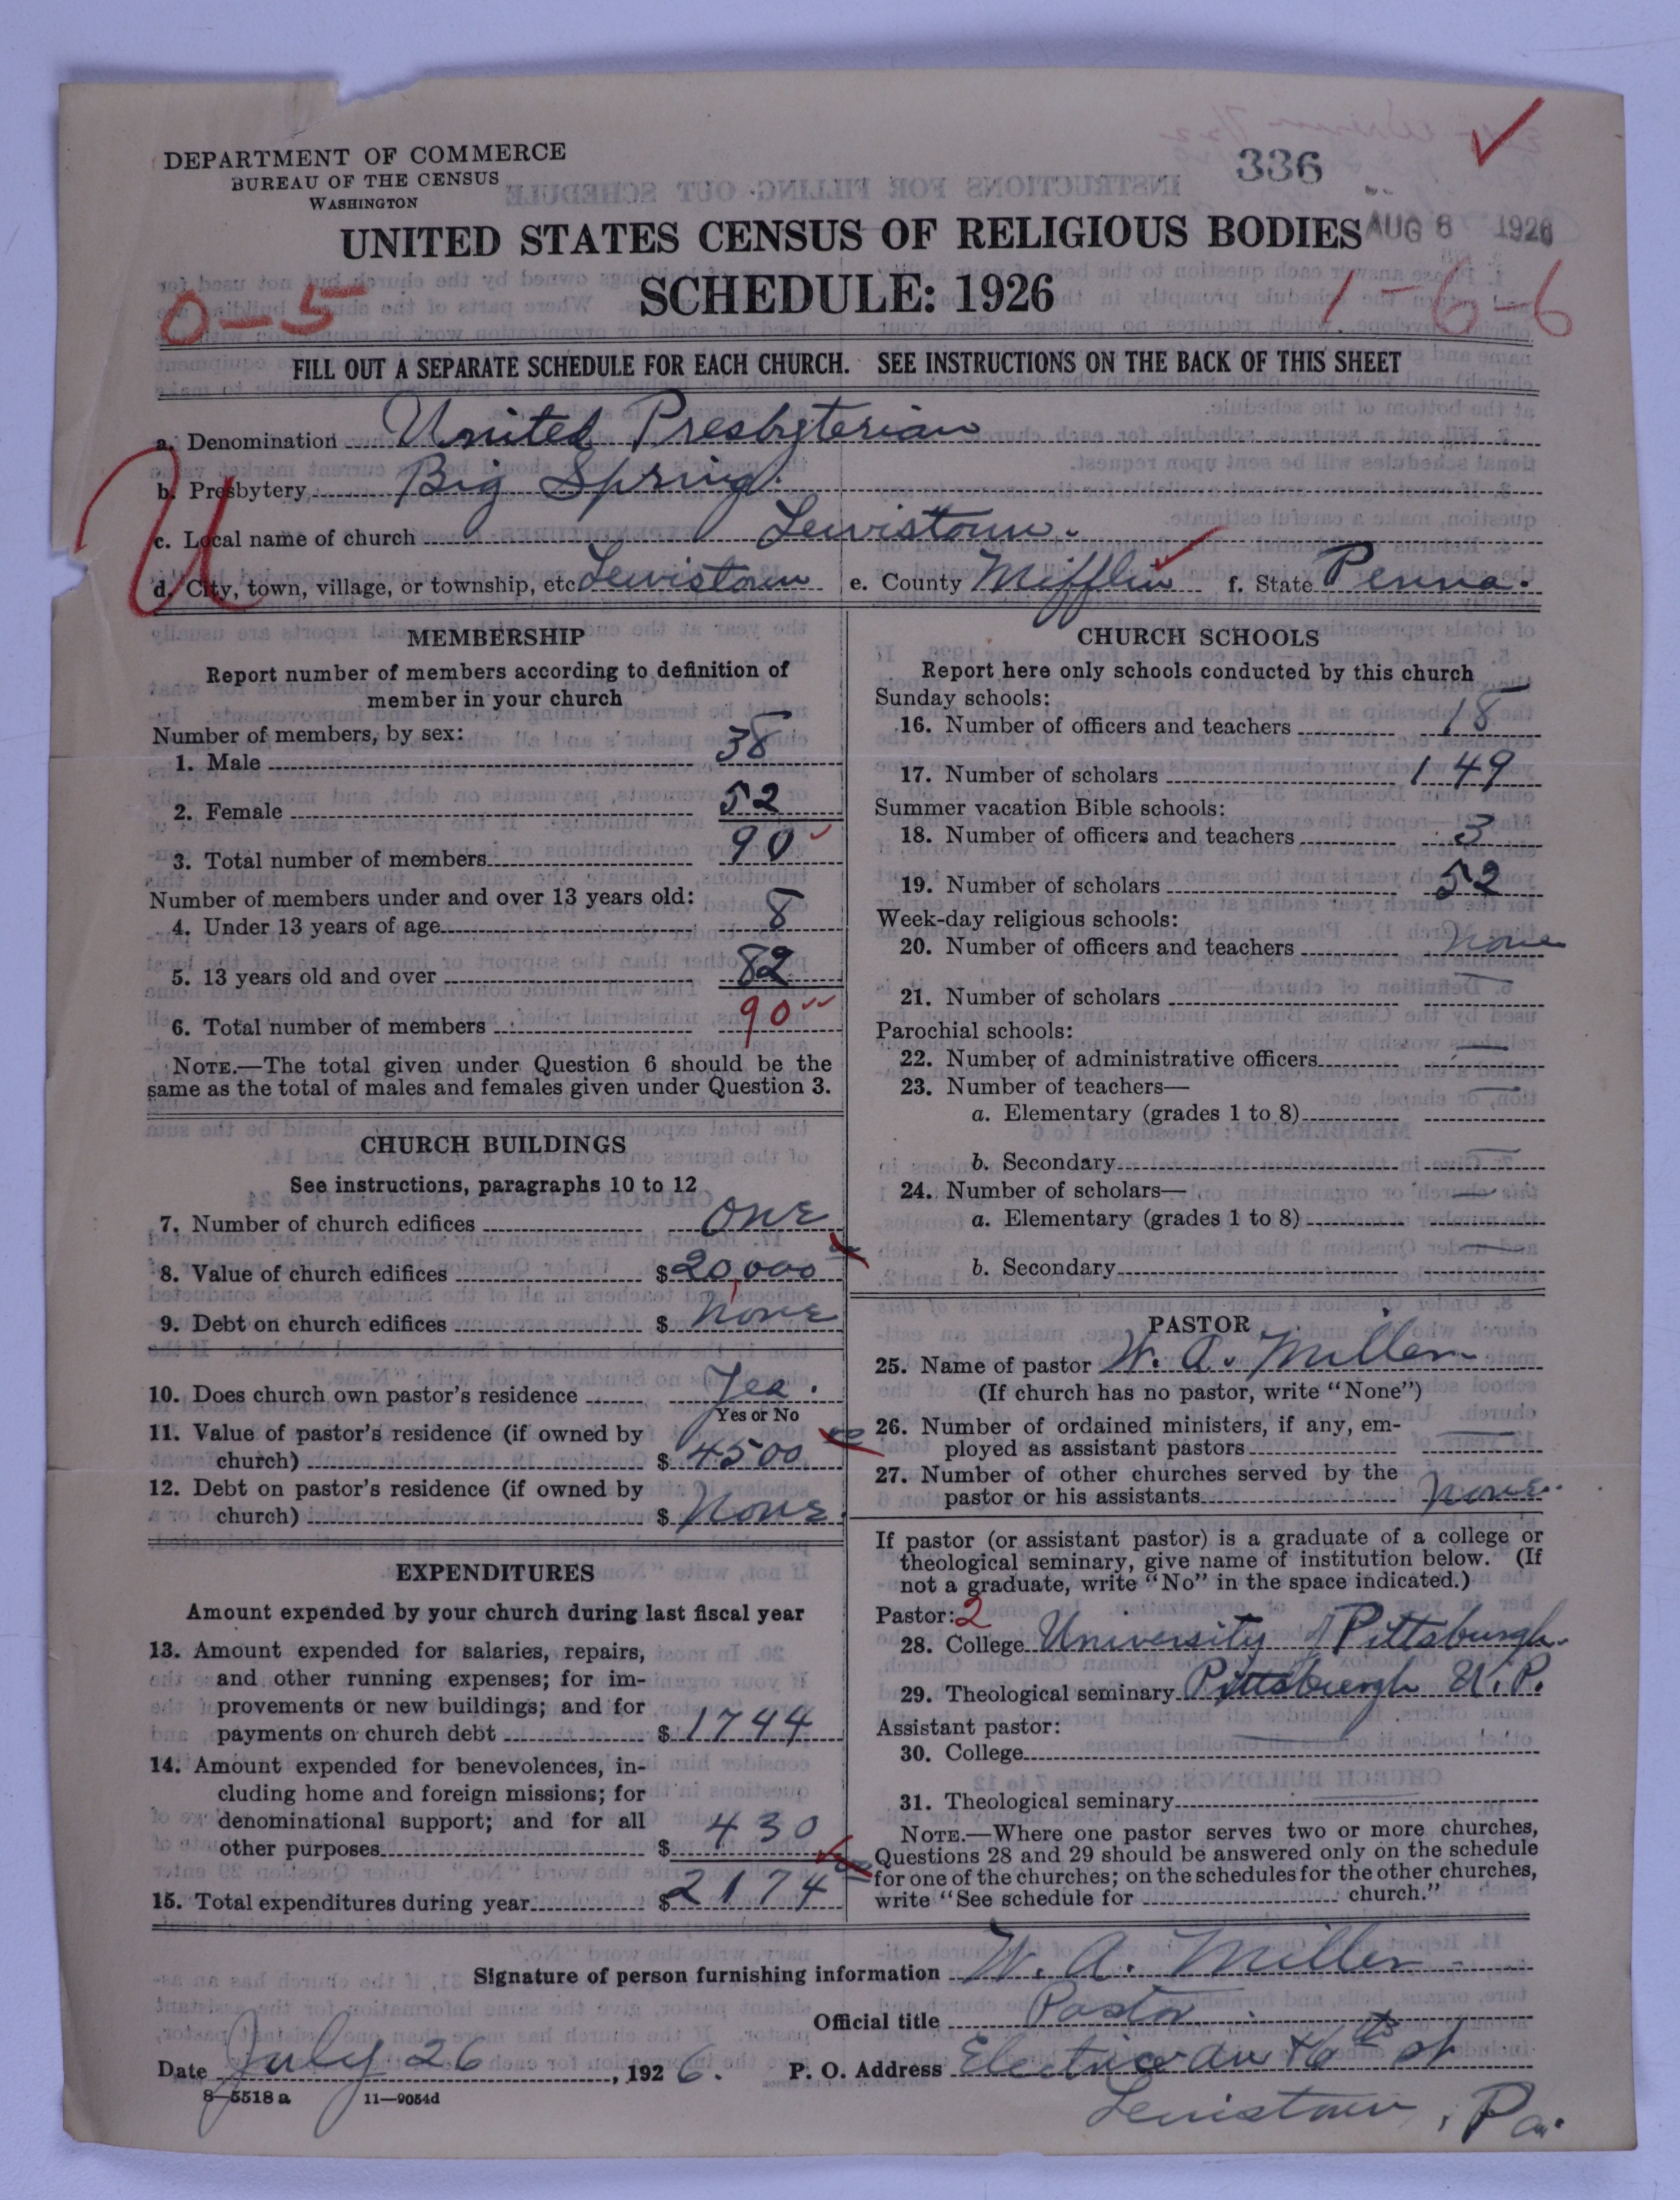 336
DEPARTMENT OF COMMERCE
BUREAU OF THE CENSUS
WASHINGTON
UNITED STATES CENSUS OF RELIGIOUS BODIES
AUG 6 1926
SCHEDULE: 1926
0-5
1-6-6
FILL OUT A SEPARATE SCHEDULE FOR EACH CHURCH. SEE INSTRUCTIONS ON THE BACK OF THIS SHEET
a. Denomination United Presbyterian
b. Presbytery Big Spring.
c. Local name of church Lewistown.
d. City, town, village, or township, etc Lewistown e. County Mifflin f. State Penna.
U
MEMBERSHIP
Report number of members according to definition of
member in your church
Number of members, by sex:
1. Male 38
2. Female 52
3. Total number of members 90
Number of members under and over 13 years old:
4. Under 13 years of age 8
5. 13 years old and over 82
6. Total number of members 90
NOTE.—The total given under Question 6 should be the
same as the total of males and females given under Question 3.
CHURCH BUILDINGS
See instructions, paragraphs 10 to 12
7. Number of church edifices one
8. Value of church edifices $20,000
9. Debt on church edifices $ none
10. Does church own pastor's residence Yes.
Yes or No
11. Value of pastor's residence (if owned by
church) $ 4500
12. Debt on pastor's residence (if owned by
church) $ None.
EXPENDITURES
Amount expended by your church during last fiscal year
13. Amount expended for salaries, repairs,
and other running expenses; for im-
provements or new buildings; and for
payments on church debt $ 1744
14. Amount expended for benevolences, in-
cluding home and foreign missions; for
denominational support; and for all
other purposes $ 430
15. Total expenditures during year $ 2174
CHURCH SCHOOLS
Report here only schools conducted by this church
Sunday schools:
16. Number of officers and teachers 18
17. Number of scholars 149
Summer vacation Bible schools:
18. Number of officers and teachers 3
19. Number of scholars 52
Week-day religious schools:
20. Number of officers and teachers none
21. Number of scholars —
Parochial schools:
22. Number of administrative officers —
23. Number of teachers—
a. Elementary (grades 1 to 8) —
b. Secondary —
24. Number of scholars—
a. Elementary (grades 1 to 8) —
b. Secondary —
PASTOR
25. Name of pastor W. A. Miller
(If church has no pastor, write "None")
26. Number of ordained ministers, if any, em-
ployed as assistant pastors —
27. Number of other churches served by the
pastor or his assistants none.
If pastor (or assistant pastor) is a graduate of a college or
theological seminary, give name of institution below. (If
not a graduate, write "No" in the space indicated.)
Pastor: 2
28. College University of Pittsburgh.
29. Theological seminary Pittsburgh U.P.
Assistant pastor:
30. College —
31. Theological seminary —
NOTE.—Where one pastor serves two or more churches,
Questions 28 and 29 should be answered only on the schedule
for one of the churches; on the schedules for the other churches,
write "See schedule for church."
Signature of person furnishing information W. A. Miller
Official title Pastor
Date July 26, 1926. P. O. Address Electric av & 6th st
8—5518 a 11—9054d
Lewistown, Pa.